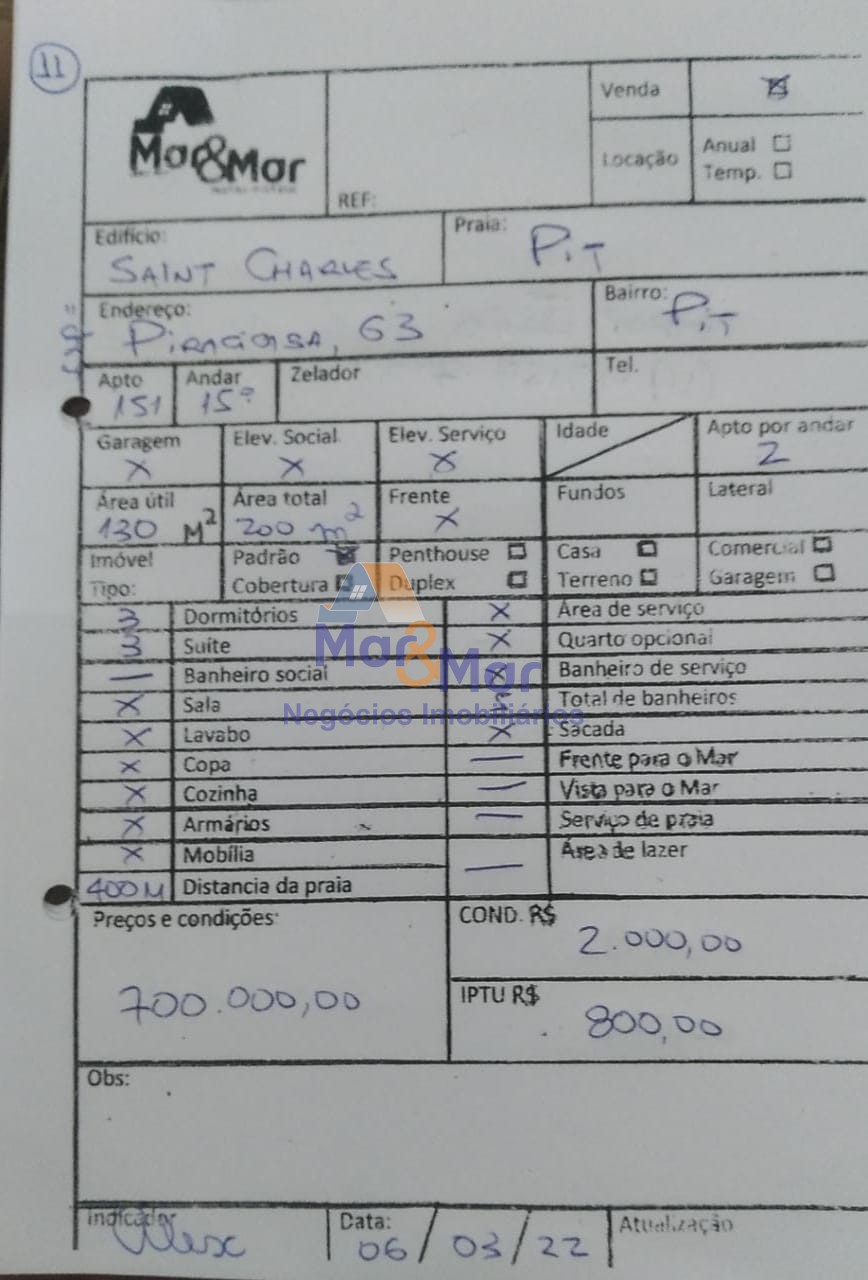 11
Venda
Mar&Mar
Locação
Anual
Temp.
REF:
Edifício:
SAINT CHARLES
Praia:
PIT
Endereço:
63
Bairro:
PIT
Apto
151
Andar
15º
Zelador
Tel.
Garagem
X
Elev. Social
X
Elev. Serviço
X
Idade
Apto por andar
2
Área útil
130 M²
Área total
200 m²
Frente
X
Fundos
Lateral
Imóvel
Tipo:
Padrão
Cobertura
Penthouse
Duplex
Casa
Terreno
Comercial
Garagem
3 Dormitórios X Área de serviço
3 Suíte X Quarto opcional
— Banheiro social X Banheiro de serviço
X Sala Total de banheiros
X Lavabo X Sacada
X Copa — Frente para o Mar
X Cozinha — Vista para o Mar
X Armários — Serviço de praia
X Mobília — Área de lazer
400M Distancia da praia
Mar&Mar
Negócios Imobiliários
Preços e condições:
700.000,00
COND. R$
2.000,00
IPTU R$
800,00
Obs:
Indicador
Alex
Data:
06/03/22
Atualização